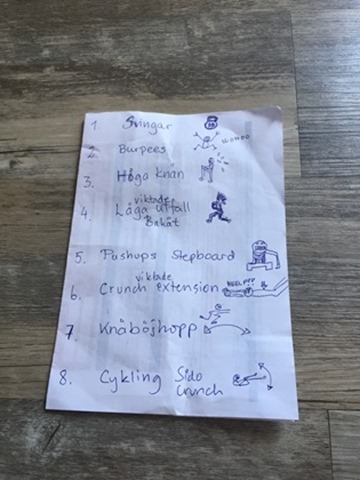 1 Svingar
2 Burpees
3. Höga knän
4. Låga viktade utfall
Bakåt
5. Pushups Stepboard
6. viktade Crunch extension
7. Knäböjhopp
8. Cykling Sido
Crunch